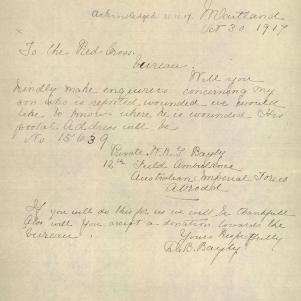 acknowledged Maitland
Oct 30 1917
To the Red Cross.
bureau.
Will you
kindly make enquiries concerning my
son who is reported wounded we would
like to know where he is wounded His
postal Address will be
No 15639
Private W. R. G Bayly
12th Field Ambulance
Australian Imperial Forces
Abroad
If you will do this for us we will be thankfull
Also will you accept a donation towards the
bureau.
Yours Respectfully
B. Bayly